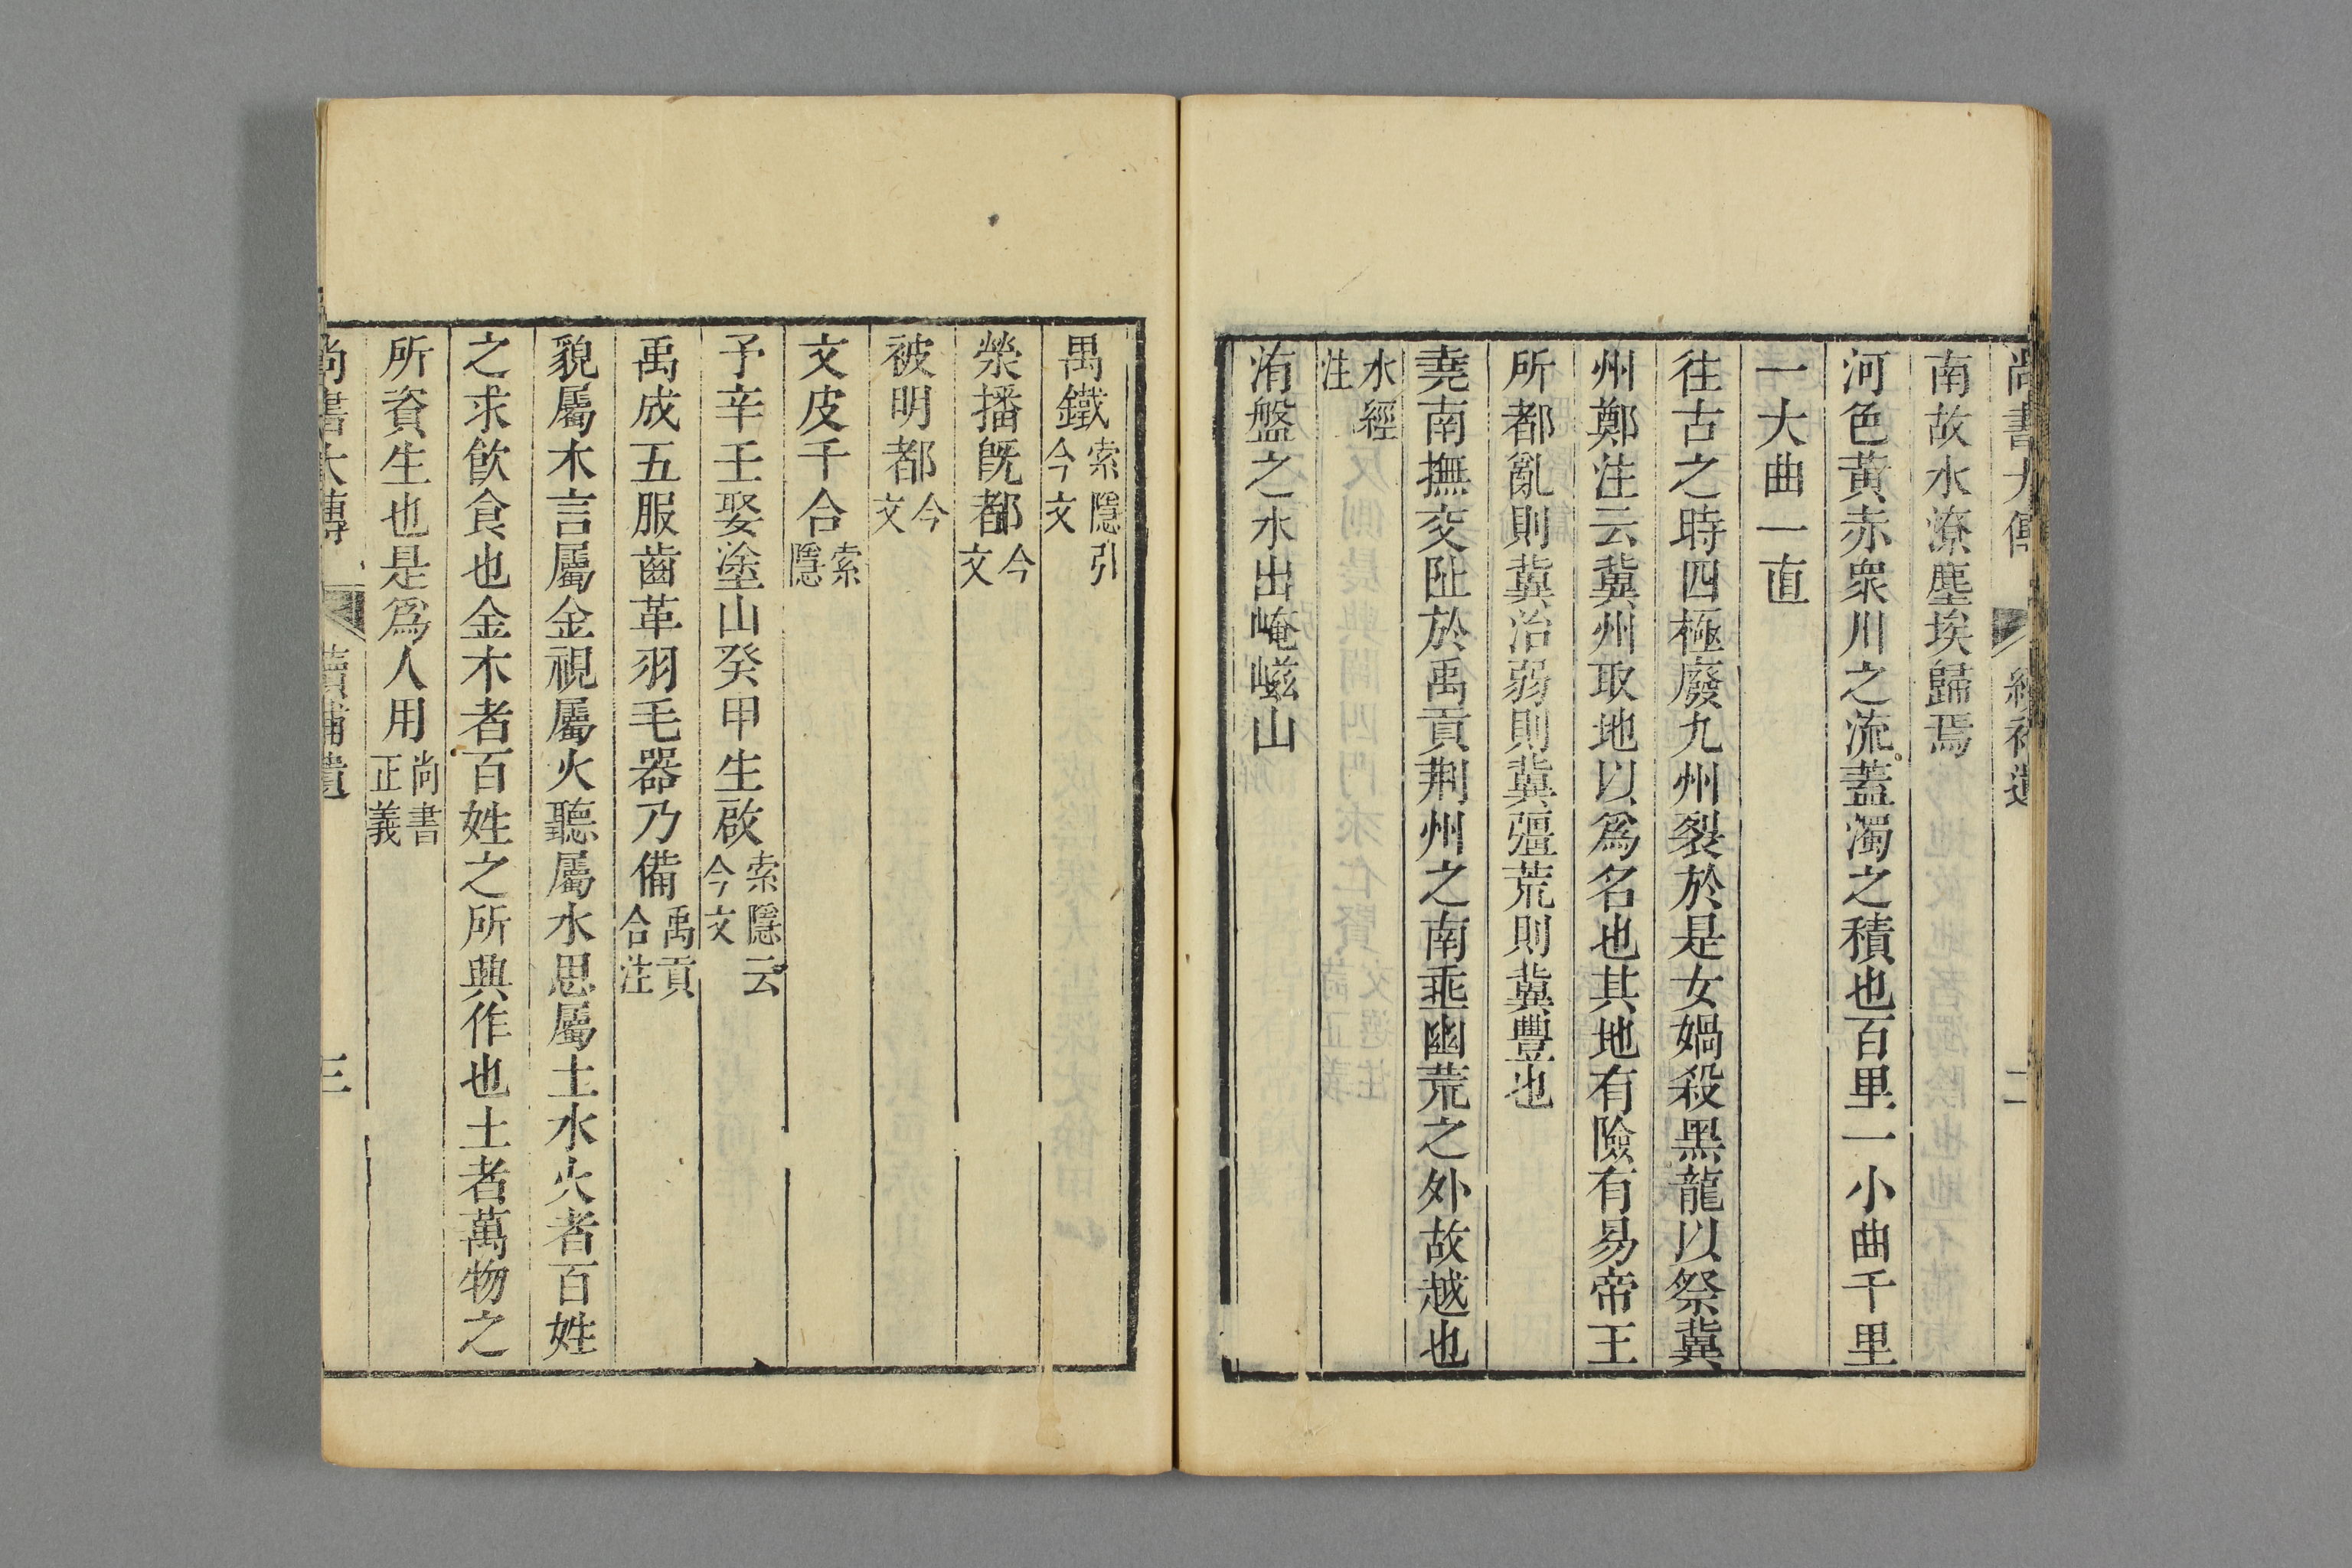 尚書大傳 續補遺 二
南故水潦塵埃歸焉
河色黃赤衆川之流蓋濁之積也百里一小曲千里
一大曲一直
往古之時四極廢九州裂於是女媧殺黑龍以祭冀
州鄭注云冀州取地以爲名也其地有險有易帝王
所都亂則冀治弱則冀彊荒則冀豐也
堯南撫交阯於禹貢荆州之南垂幽荒之外故越也
水經
注
洧盤之水出崦嵫山
禺鐵索隱引
今文
榮播旣都今
文
被明都今
文
文皮千合索
隱
予辛壬娶塗山癸甲生啟索隱云
今文
禹成五服齒革羽毛器乃備禹貢
合注
貌屬木言屬金視屬火聽屬水思屬土水火者百姓
之求飲食也金木者百姓之所興作也土者萬物之
所資生也是爲人用尚書
正義
尚書大傳 續補遺 三